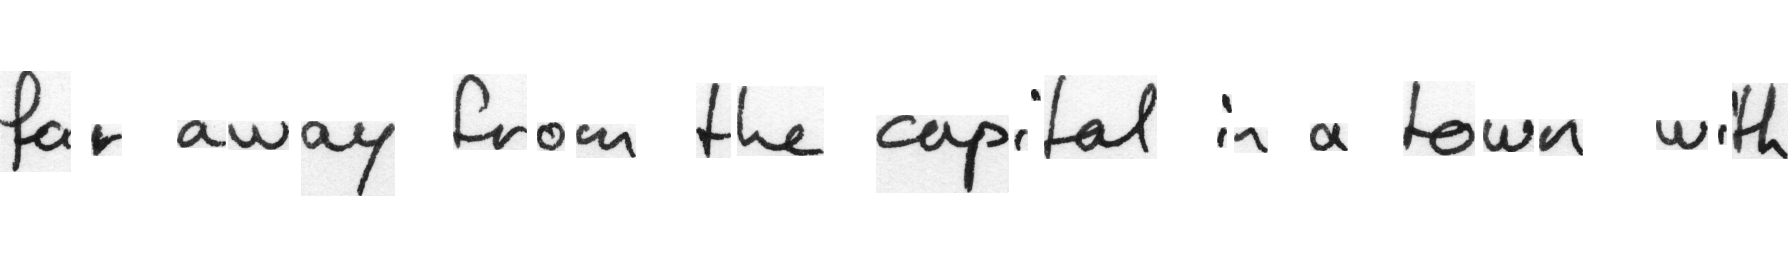 far away from the capital in a town with